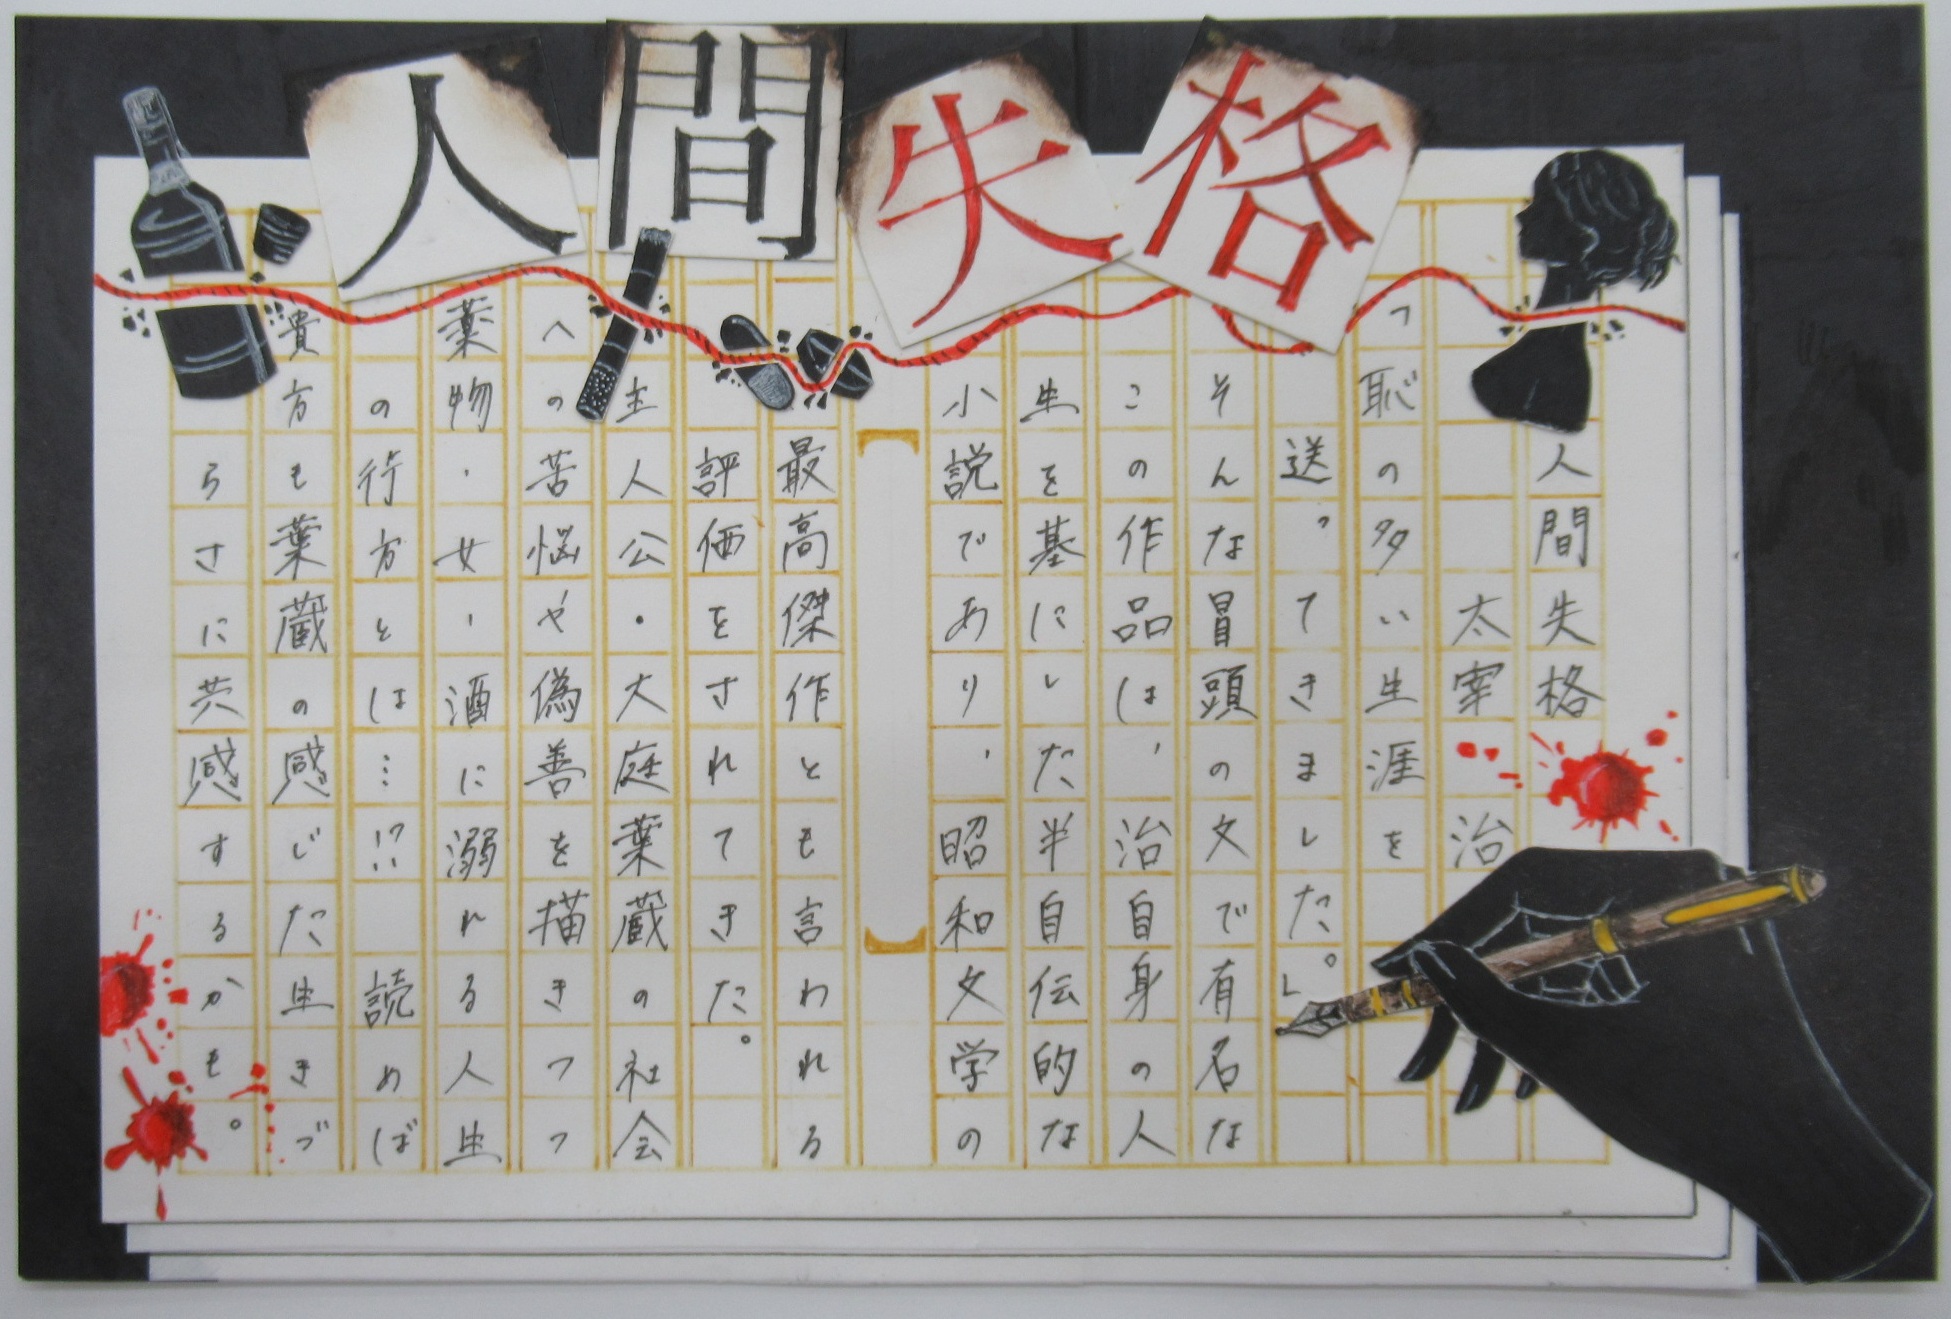 人間失格
人間失格
太宰　治
「恥の多い生涯を
送ってきました。」
そんな冒頭の文で有名な
この作品は、治自身の人
生を基にした半自伝的な
小説であり、昭和文学の
最高傑作とも言われる
評価をされてきた。
主人公・大庭葉蔵の社会
への苦悩や偽善を描きつつ
薬物・女・酒に溺れる人生
の行方とは…⁉　読めば
貴方も葉蔵の感じた生きづ
らさに共感するかも。